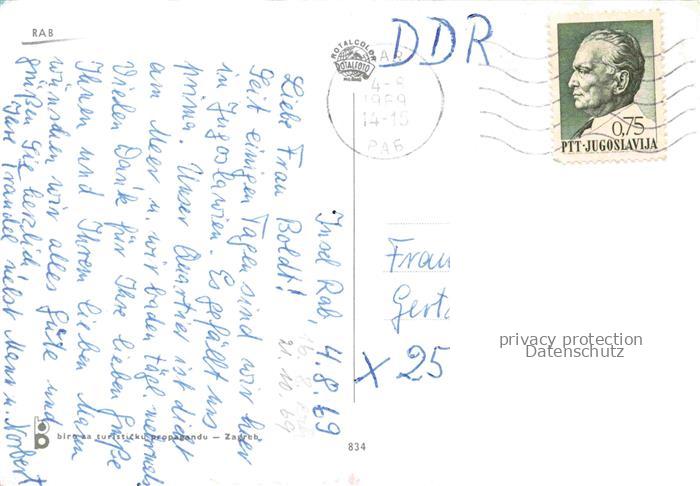 RAB
ROTALCOLOR
ROTALFOTO
DDR
RAB
4-8
1969
14-15
РАБ
0,75
PTT-JUGOSLAVIJA
Insel Rab, 4.8.69
Liebe Frau Boldt!
Seit einigen Tagen sind wir hier
in Jugoslawien. Es gefällt uns
prima. Unser Quartier ist dicht
am Meer u. wir baden tägl. mermals
Vielen Dank für Ihre lieben Grüße
Ihnen und Ihrem lieben Mann
wünschen wir alles Gute und
grüßen Sie herzlich
Ihre Traudel nebst Mann u. Norbert
21.10.69
Frau
Gert
x 25
privacy protection
Datenschutz
biro za turističku propagandu — Zagreb
834